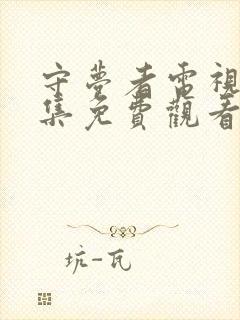 守夢者電視
集免費觀看
坑-瓦